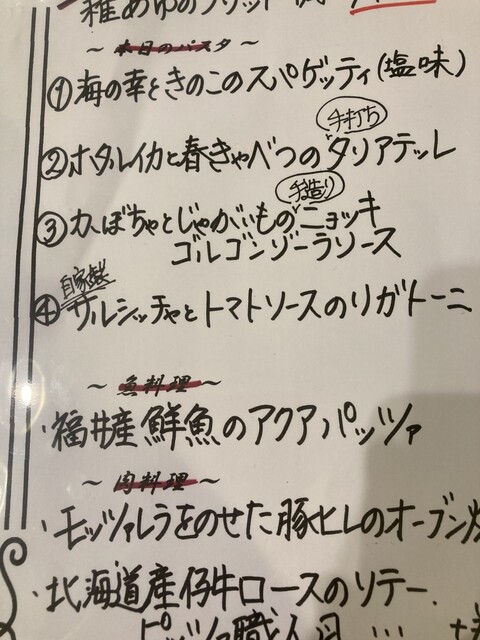 稚あゆのフリット
〜本日のパスタ〜
①海の幸ときのこのスパゲッティ(塩味)
手打ち
②ホタルイカと春きゃべつのタリアテッレ
手造り
③かぼちゃとじゃがいものニョッキ
ゴルゴンゾーラソース
自家製
④サルシッチャとトマトソースのリガトーニ
〜魚料理〜
・福井産鮮魚のアクアパッツァ
〜肉料理〜
・モッツァレラをのせた豚ヒレのオーブン焼
・北海道産仔牛ロースのソテー
ピッツァ職人風